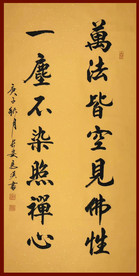 萬法皆空見佛性
一塵不染照禪心
庚子秋月
書